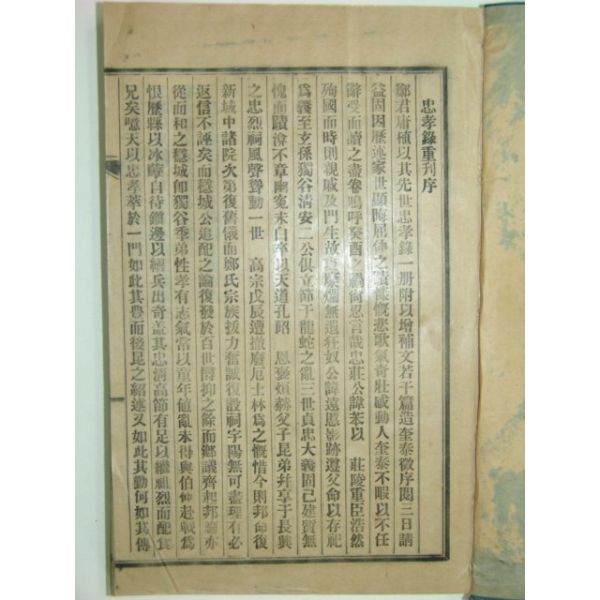 忠孝錄重刊序
鄭君庸植以其先世忠孝錄一册附以增補文若干篇造奎泰徵序閱三日請
益固因歷述家世顯晦屈伸之蹟慷慨悲歌氣奇壯感動人奎泰不暇以不任
辭受而讀之盡卷嗚呼癸酉之禍尙忍言哉忠莊公諱苯以 莊陵重臣浩然
殉國而時則親戚及門生故舊糜爛無遺狂奴公諱遠恩影跡遵父命以存祀
爲義至玄孫獨谷淸安二公俱立節于龍蛇之亂三世貞忠大義固已建質無
愧而蹟潛不章幽寃未白卒以天道孔昭 恩褒煩赫父子昆弟幷享于長興
之忠烈祠風聲聳動一世 高宗戊辰遭撤廢厄士林爲之慨惜今則邦命復
新域中諸院次第復舊儀而鄭氏宗族拔力奮誠復設祠宇陽無可盡理有必
返信不誣矣而穩城公追配之論復發於百世礡抑之餘而鄕議齊起邦論亦
從而和之穩城卽獨谷季弟性孝有志氣當以童年値亂未得與伯仲赴戰爲
恨歷縣以冰孽自待鎭邊以綏兵出奇蓋其忠淸高節有足以繼祖烈而配其
兄矣噫天以忠孝萃於一門如此其豊而後昆之紹述又如此其勤何如其傳